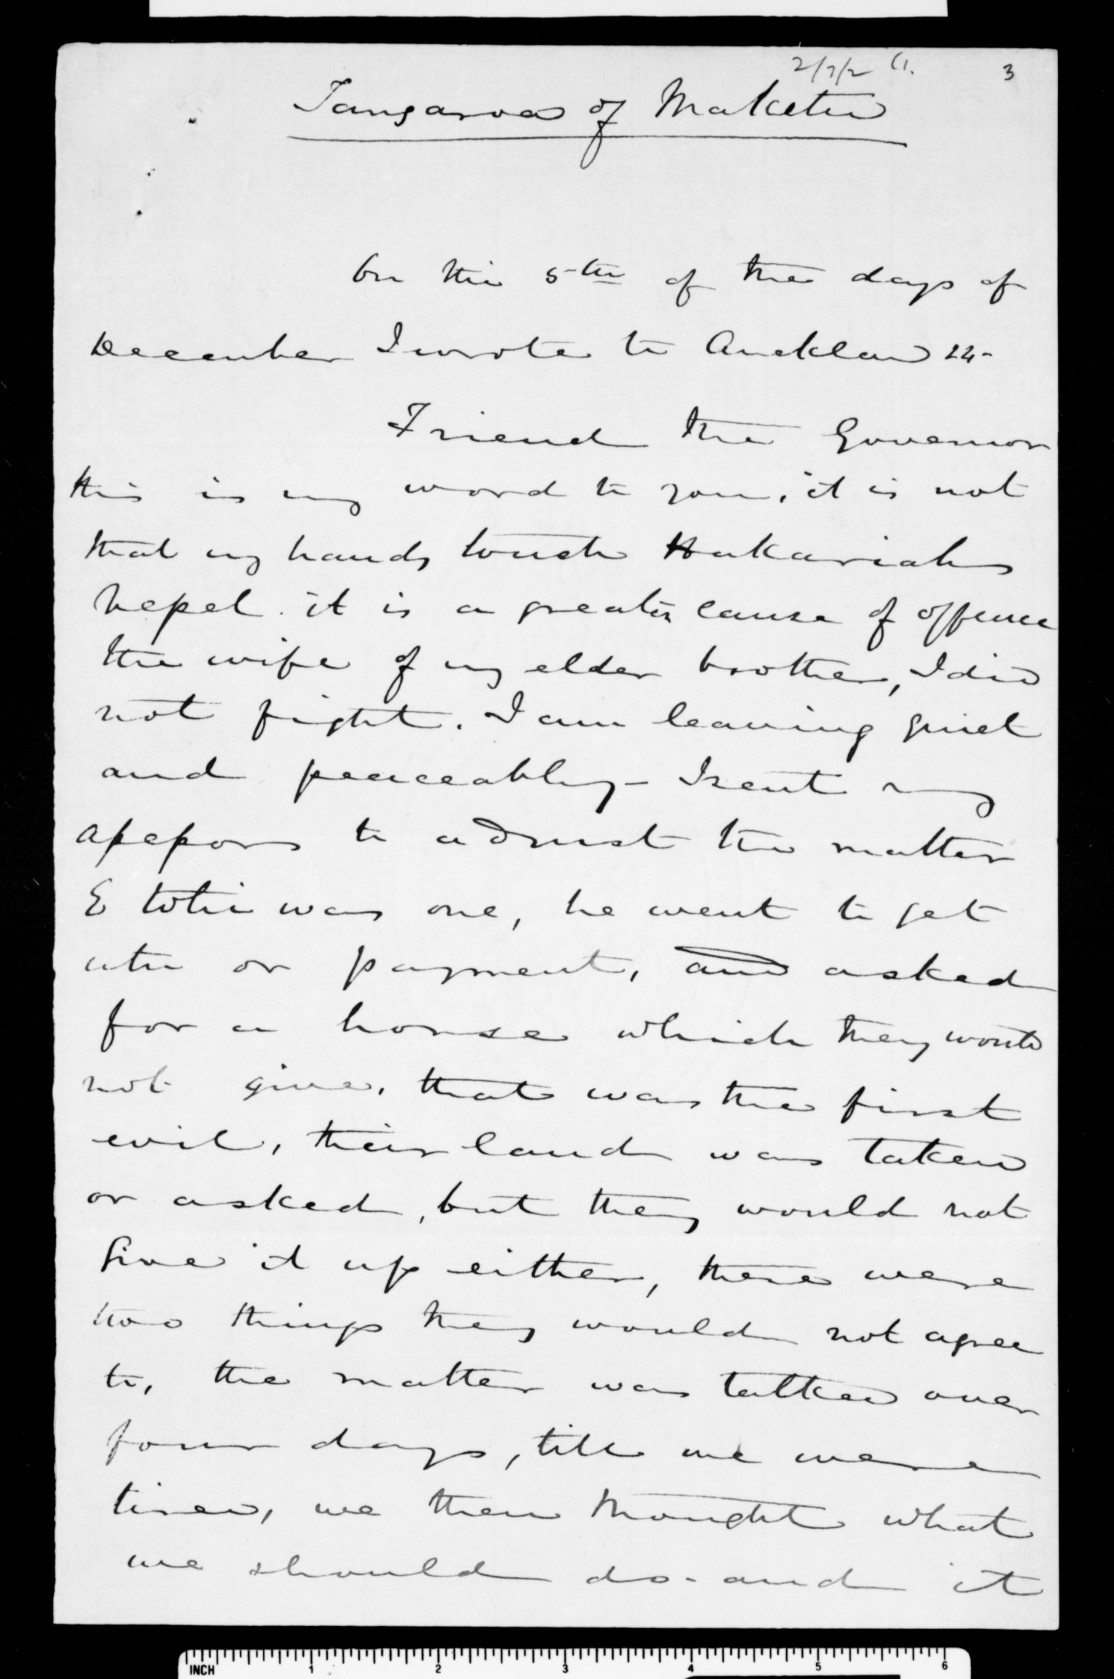 3
Tangaroa of Maketu
On the 5th of the days of
December I wrote to Auckland
Friend the Governor
this is my word to you, it is not
that my hands touch Hakariah
it is a greater cause of offence
the wife of my elder brother, I did
not fight. I am leaving quiet
and peaceably - I sent my
to adjust the matter
E was one, he went to get
utu or payment, and asked
for a horse which they would
not give, that was the first
evil, their land was taken
or asked, but they would not
give it up either, there were
two things they would not agree
to, the matter was talked over
four days, till we were
tired, we then thought what
we should do - and it
INCH 1 2 3 4 5 6